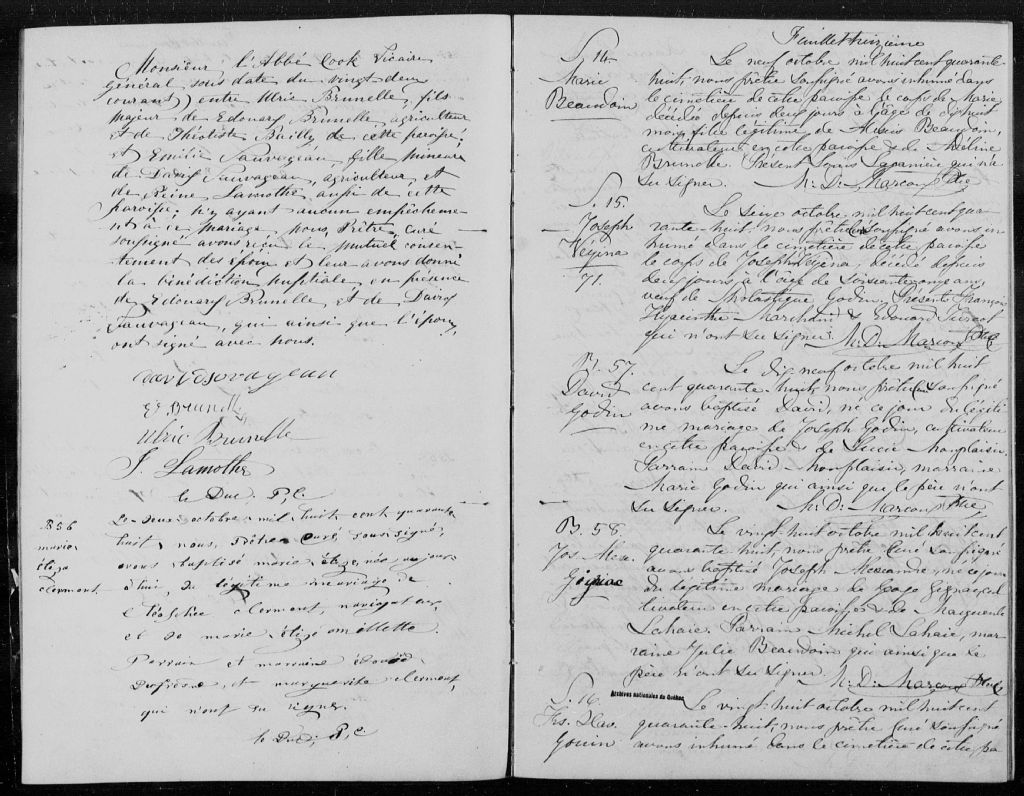 Monsieur l'Abbé Cook Vicaire
Général sous date du vingt deux
courant) entre Ulric Brunelle, fils
majeur de Edouard Brunelle, agriculteur
et de Théotiste Bailly de cette paroisse;
et Emilie Sauvageau, fille mineure
de David Sauvageau, agriculteur et
de Reine Lamothe aussi de cette
paroisse; n'y ayant aucun empêcheme-
nt à ce mariage, nous, Prêtre, curé
soussigné avons reçu le mutuel consen-
tement des époux et leur avons donné
la bénédiction nuptiale en présence
de Edouard Brunelle et de David
Sauvageau, qui ainsi que l'époux,
ont signé avec nous.
david sovageau
Ed Brunelle
Ulric Brunelle
J. Lamothe
le Duc. P.C.
B 56
marie
éliza
clermont
Le deux octobre mil huit cent quarante
huit, nous, Prêtre curé soussigné,
avons baptisé marie élize, née aujour-
d'hui, du légitime mariage de
clermont, navigateur,
et de marie élize
Parrain et marraine édouard
et marguerite clermont,
qui n'ont su signer.
le Duc, P.C
Feuillet treizième
S. 14.
Marie
Beaudoin
Le neuf octobre mil huit cent quarante
huit, nous prêtre soussigné avons inhumé dans
le cimetière de cette paroisse le corps de Marie
décédée depuis deux jours à l'âge de dix huit
mois, fille légitime de Alexis Beaudoin,
cultivateur en cette paroisse & de Adéline
Brunelle. Présent Louis qui n'a
su signer. M. D. Marcoux Ptre
S. 15.
Joseph
Vézina
71.
Le seize octobre mil huit cent qua-
rante-huit, nous prêtre soussigné avons in-
humé dans le cimetière de cette paroisse
le corps de Joseph Vézina, décédé depuis
deux jours à l'âge de soixante onze ans,
veuf de Scholastique Godin. Présents François
Hyacinthe Marchand & Edouard
qui n'ont su signer. M. D. Marcoux Ptre
B. 57.
David
Godin
Le dix neuf octobre mil huit
cent quarante-huit, nous prêtre soussigné
avons baptisé David, né ce jour du légiti-
me mariage de Joseph Godin, cultivateur
en cette paroisse & de Lucie Monplaisir.
Parrain David Monplaisir, marraine
Marie Godin qui ainsi que le père n'ont
su signer. M. D. Marcoux Ptre
B. 58.
Jos. Alex.
Gignac
Le vingt-huit octobre mil huit cent
quarante huit, nous prêtre Curé soussigné
avons baptisé Joseph Alexandre, né ce jour
du légitime mariage de Gignac cul-
tivateur en cette paroisse & de Marguerite
Lahaie. Parrain Michel Lahaie, mar-
raine Julie Beaudoin qui ainsi que le
père n'ont su signer. M. D. Marcoux Ptre
Archives nationales du Québec
S. 16.
Frs. Xav.
Gouin
Le vingt-huit octobre mil huit cent
quarante-huit, nous prêtre Curé soussigné
avons inhumé dans le cimetière de cette pa